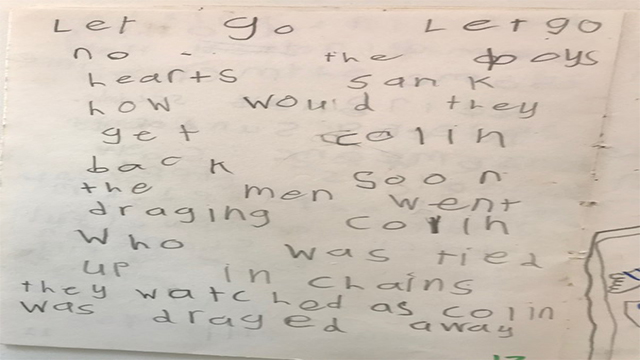 Let go Let go
no - the boys
hearts sank
how would they
get colin
back soon
the men went
draging colin
Who was tied
up in chains
they watched as colin
was draged away